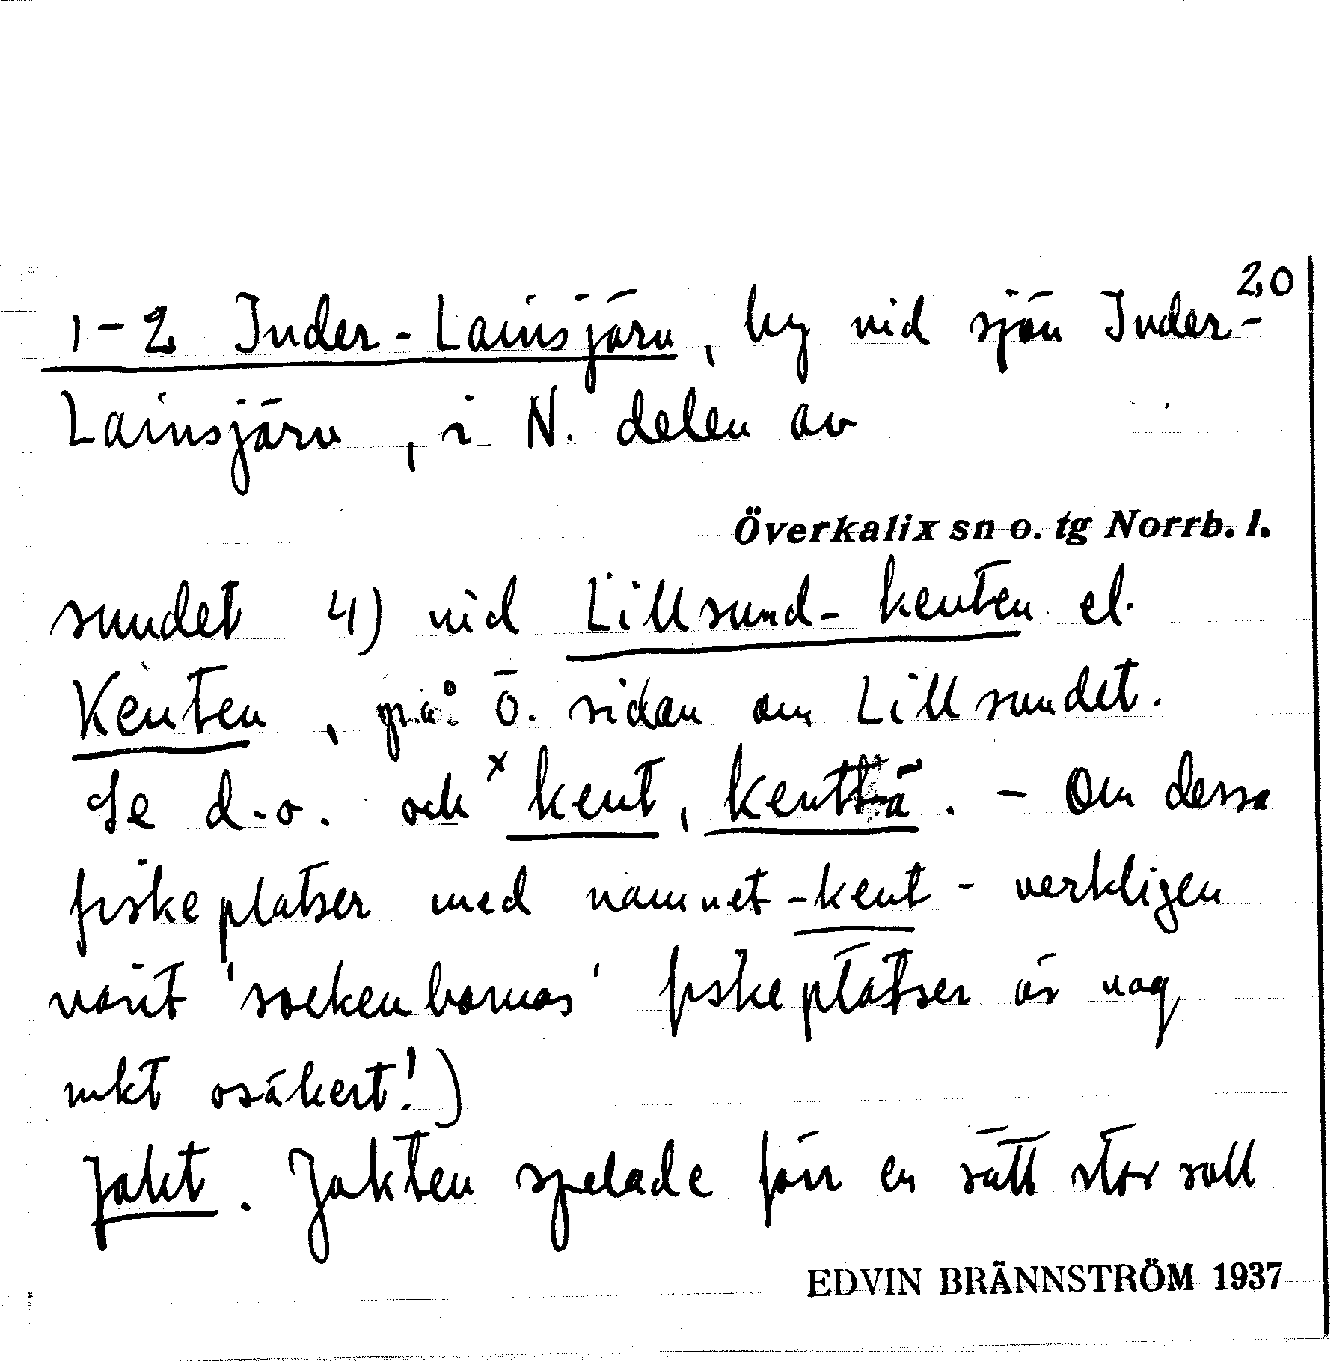 20
1-2 Inder-Lainsjärv, by vid sjön Inder-
Lainsjärv, i N. delen av
Överkalix sn o. tg Norrb. l.
sundet 4) vid Lillsund-kenten el.
Kenten, på Ö. sidan om Lillsundet.
Se d.o. och x kent, kenttä. - Om dessa
fiskeplatser med namnet -kent- verkligen
varit 'sockenbornas' fiskeplatser är nog
mkt osäkert!)
Jakt. Jakten spelade förr en rätt stor roll
EDVIN BRÄNNSTRÖM 1937